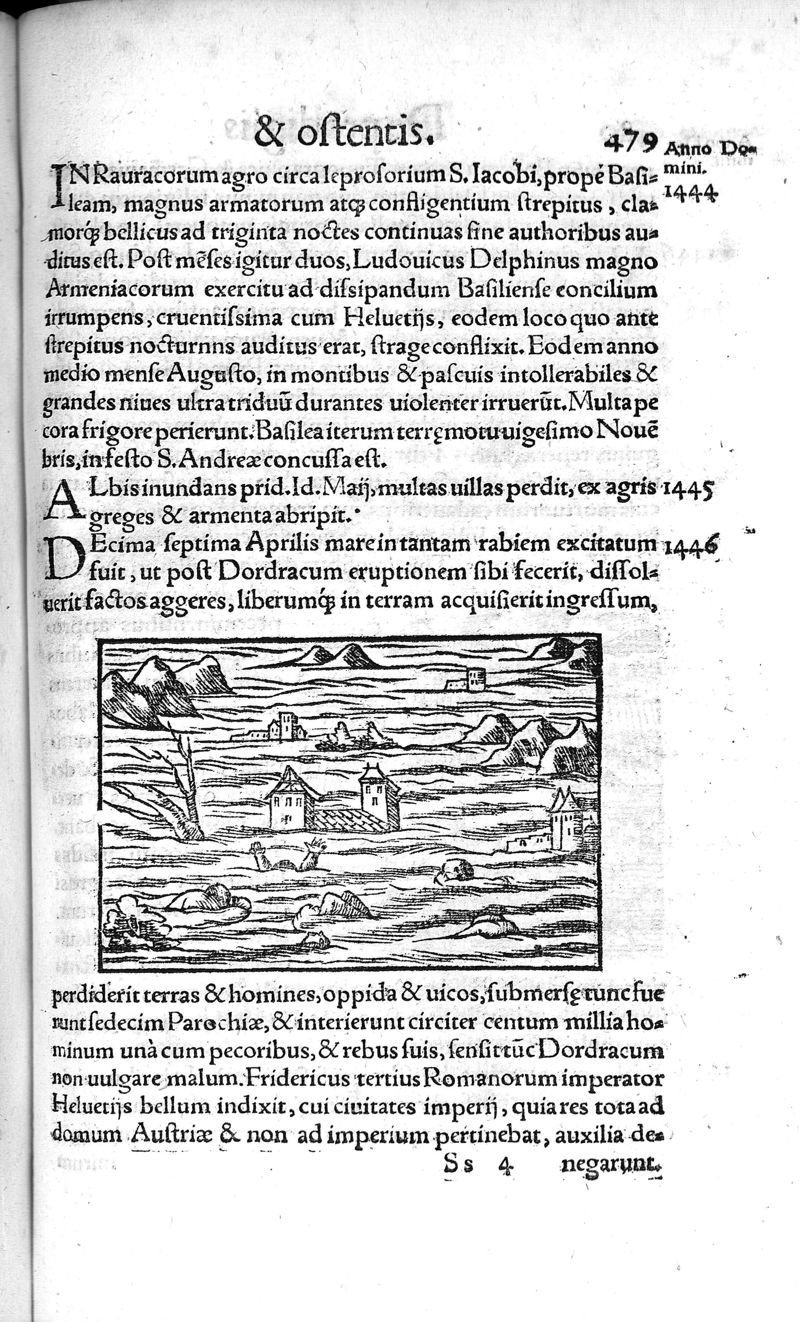 & oſtentis. 479 Anno Do-
mini.
IN Rauracorum agro circa leproſorium S. Iacobi, propé Baſi-
1444
leam, magnus armatorum atqꝫ confligentium ſtrepitus, cla-
morqꝫ́ bellicus ad triginta noctes continuas ſine authoribus au-
ditus eſt. Poſt mẽſes igitur duos, Ludouicus Delphinus magno
Armeniacorum exercitu ad diſsipandum Baſilienſe concilium
irrumpens, cruentiſsima cum Heluetĳs, eodem loco quo ante
ſtrepitus nocturnns auditus erat, ſtrage conflixit. Eodem anno
medio menſe Auguſto, in montibus & paſcuis intollerabiles &
grandes niues ultra triduũ durantes uiolenter irruerũt. Multa pe
cora frigore perierunt. Baſilea iterum terręmotu uigeſimo Nouẽ
bris, in feſto S. Andreæ concuſſa eſt.
ALbis inundans prid. Id. Maĳ, multas uillas perdit, ex agris 1445
greges & armenta abripit.
DEcima ſeptima Aprilis mare in tantam rabiem excitatum 1446
fuit, ut poſt Dordracum eruptionem ſibi fecerit, diſſol-
uerit factos aggeres, liberumqꝫ́ in terram acquiſierit ingreſſum,
perdiderit terras & homines, oppida & uicos, ſubmerſę tunc fue
runt ſedecim Parochiæ, & interierunt circiter centum millia ho-
minum unà cum pecoribus, & rebus ſuis, ſenſit tũc Dordracum
non uulgare malum. Fridericus tertius Romanorum imperator
Heluetĳs bellum indixit, cui ciuitates imperĳ, quia res tota ad
domum Auſtriæ & non ad imperium pertinebat, auxilia de-
Ss 4 negarunt.